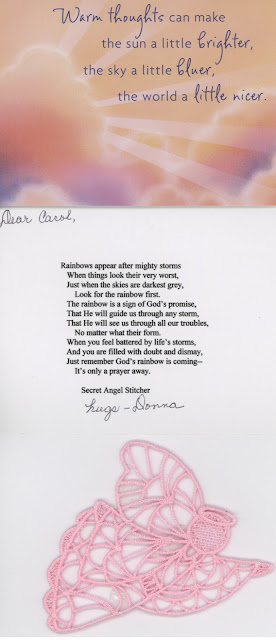 Warm thoughts can make
the sun a little brighter,
the sky a little bluer,
the world a little nicer.
Dear Carol,
Rainbows appear after mighty storms
When things look their very worst,
Just when the skies are darkest grey,
Look for the rainbow first.
The rainbow is a sign of God's promise,
That He will guide us through any storm,
That He will see us through all our troubles,
No matter what their form.
When you feel battered by life's storms,
And you are filled with doubt and dismay,
Just remember God's rainbow is coming--
It's only a prayer away.
Secret Angel Stitcher
hugs - Donna